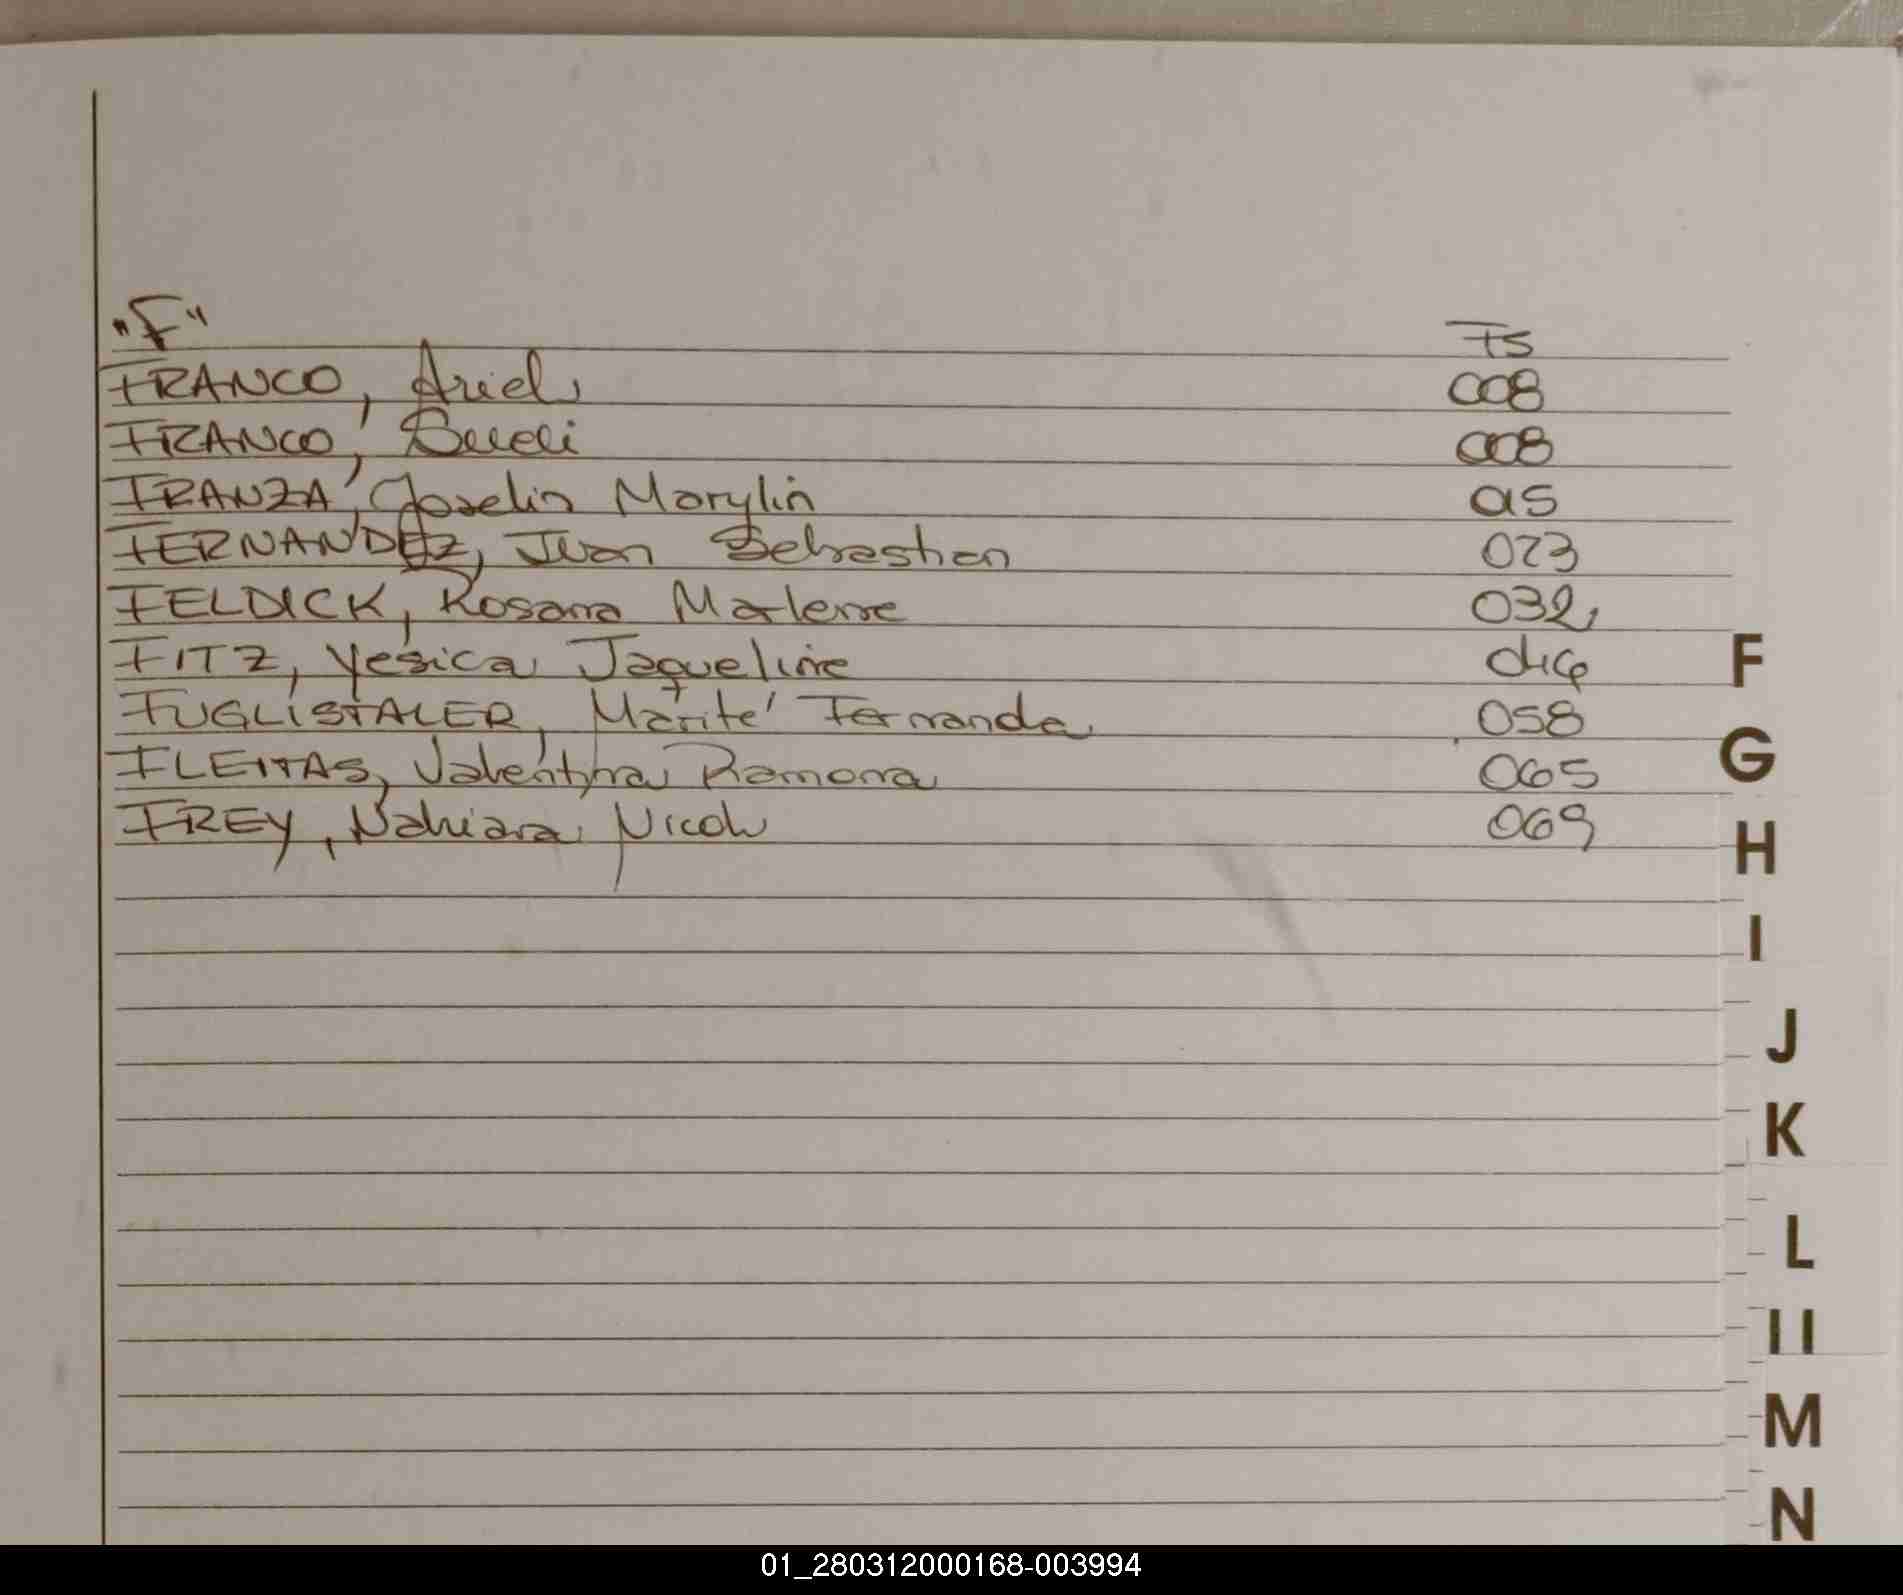 "F" Fs
FRANCO, Ariel 008
FRANCO, Sueli 008
FRANZA, Joselin Marylin 015
FERNANDEZ, Juan Sebastian 023
FELDICK, Rosana Marlene 032
FITZ, Yesica Jaqueline 046
FUGLISTALER, Marité Fernanda 058
FLEITAS, Valentina Ramona 065
FREY, Nahiara Nicole 069
F
G
H
I
J
K
L
Ll
M
N
01_280312000168-003994